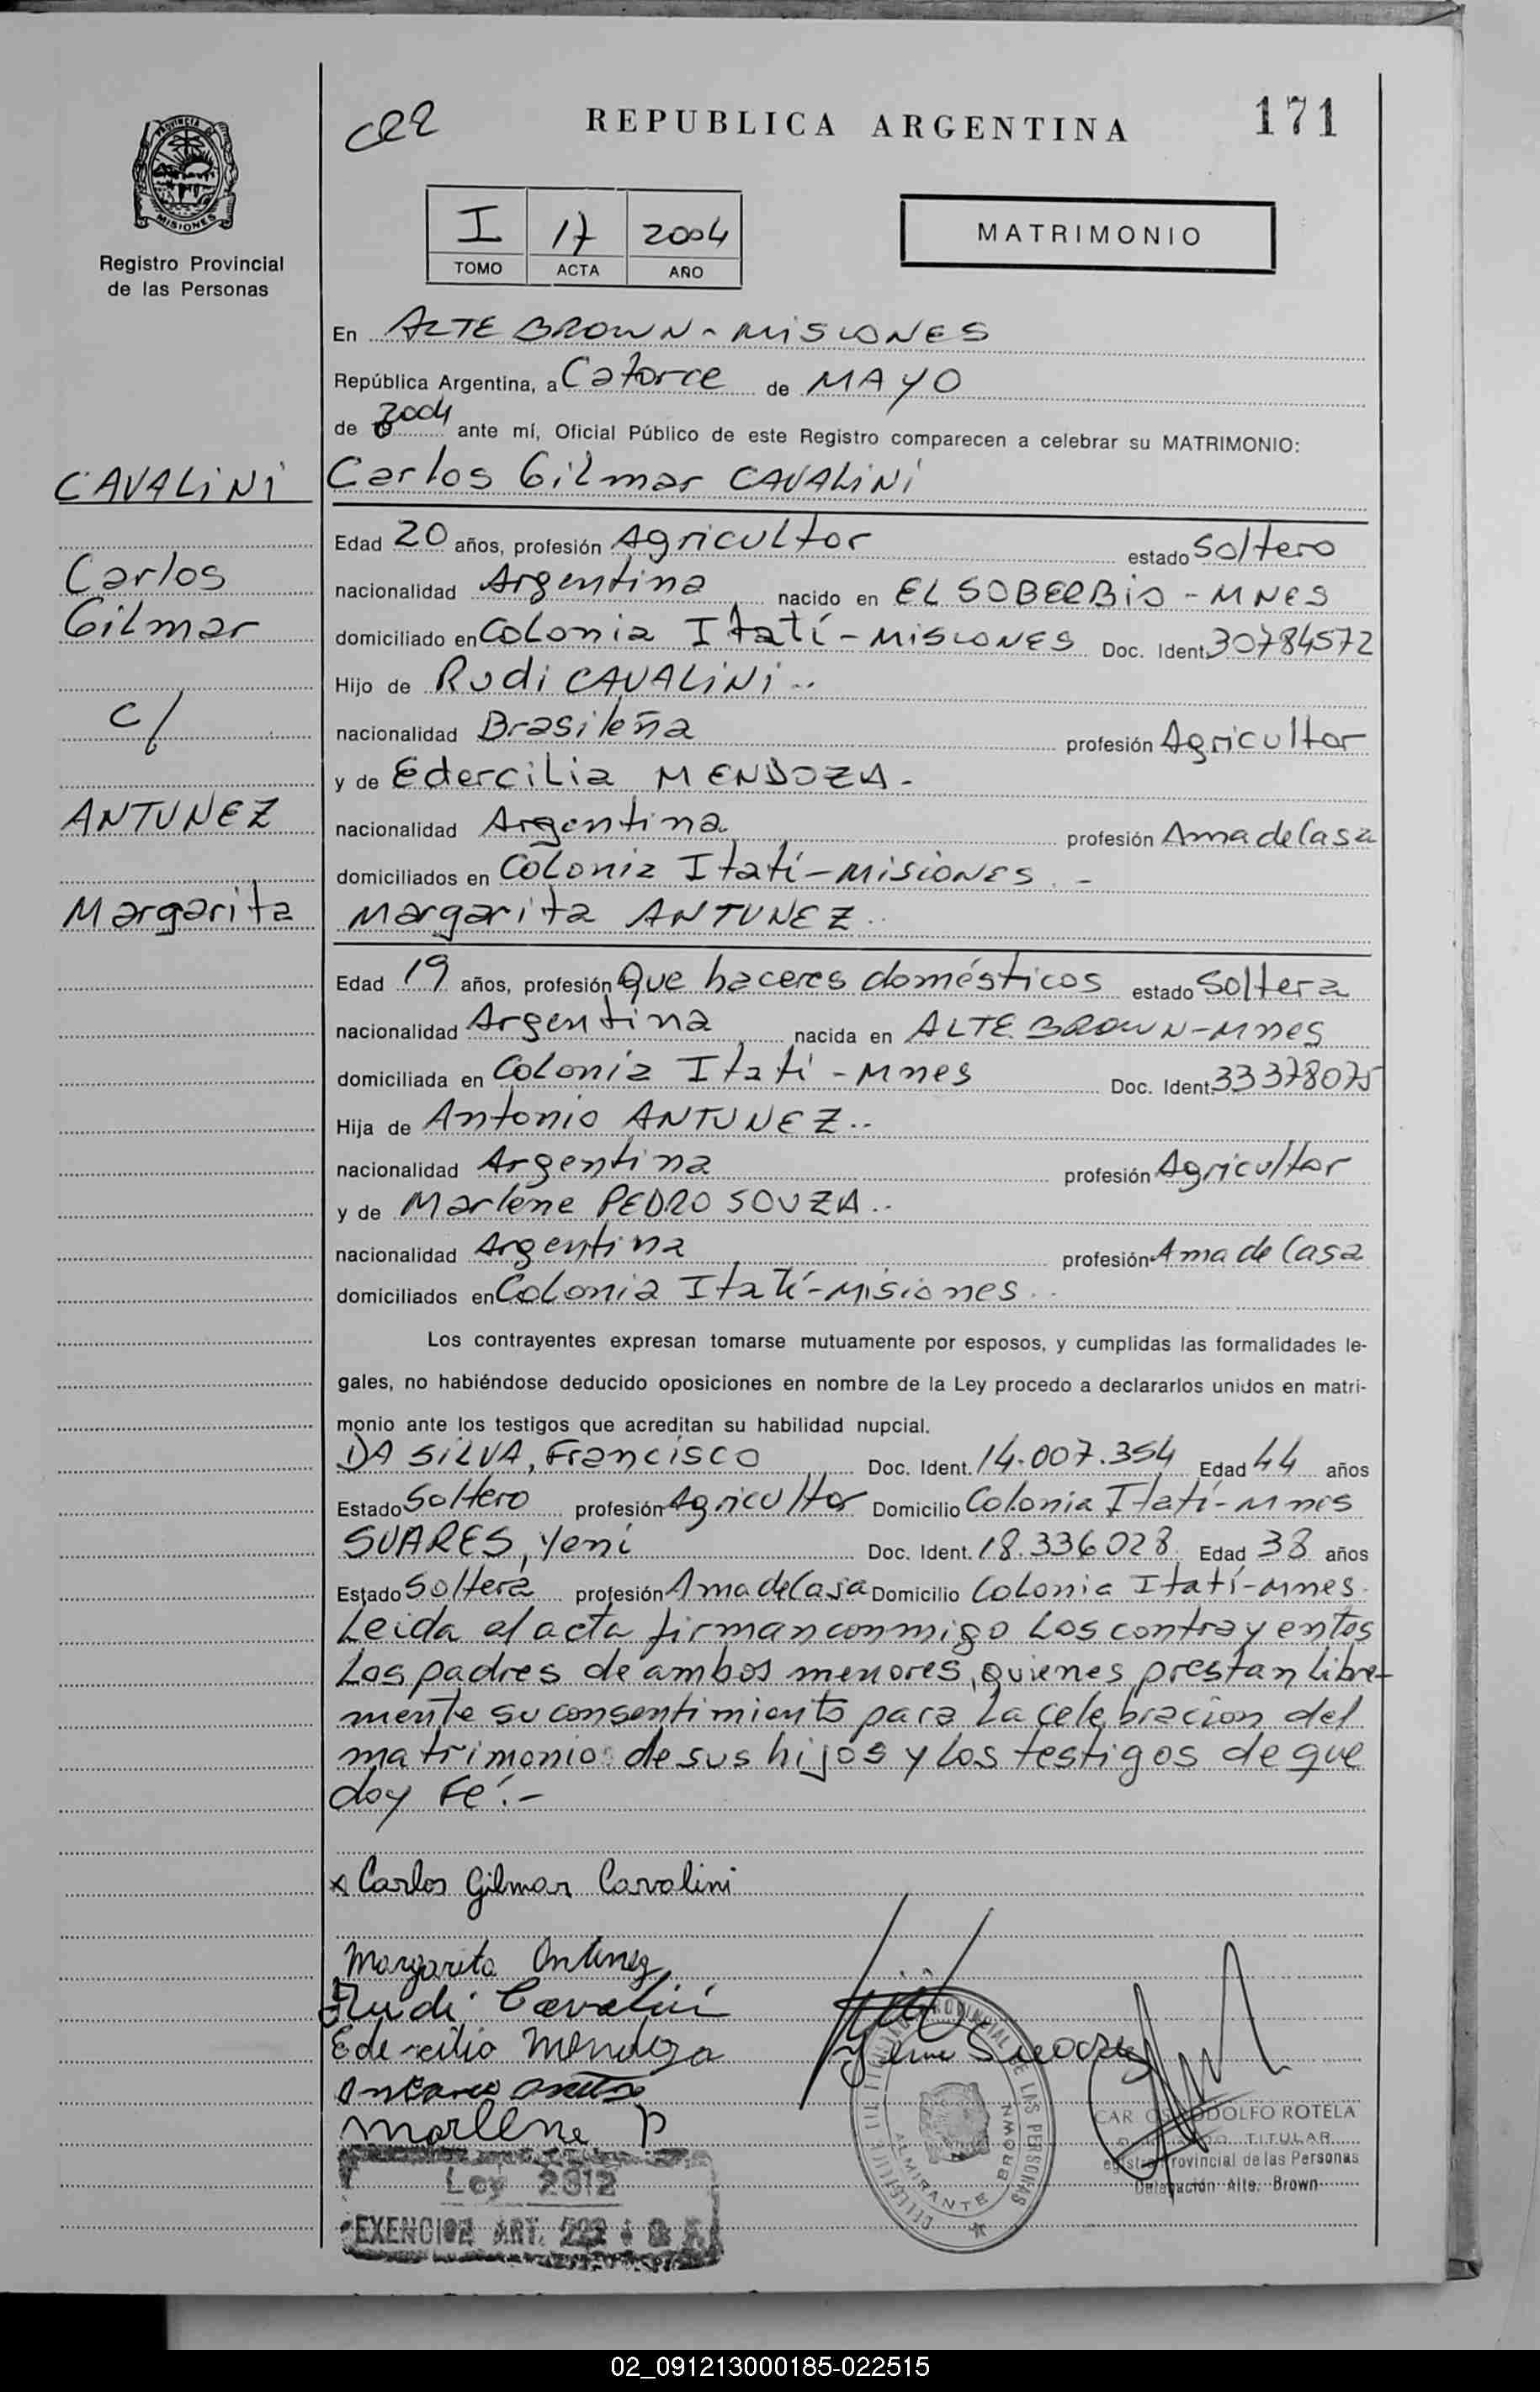 CRR
REPUBLICA ARGENTINA
171
PROVINCIA DE
MISIONES
Registro Provincial
de las Personas
I 17 2004
TOMO ACTA AÑO
MATRIMONIO
En ALTE BROWN - MISIONES
República Argentina, a Catorce de MAYO
de 2004 ante mí, Oficial Público de este Registro comparecen a celebrar su MATRIMONIO:
CAVALINI
Carlos
Gilmar
c/
ANTUNEZ
Margarita
Carlos Gilmar CAVALINI
Edad 20 años, profesión Agricultor estado Soltero
nacionalidad Argentina nacido en EL SOBERBIO - MNES
domiciliado en Colonia Itatí - MISIONES Doc. Ident. 30784572
Hijo de Rudi CAVALINI..
nacionalidad Brasileña profesión Agricultor
y de Edercilia MENDOZA -
nacionalidad Argentina profesión Ama de Casa
domiciliados en Colonia Itatí - MISIONES. -
Margarita ANTUNEZ..
Edad 19 años, profesión Que haceres domésticos estado Soltera
nacionalidad Argentina nacida en ALTE BROWN - Mnes
domiciliada en Colonia Itatí - Mnes Doc. Ident. 33378075
Hija de Antonio ANTUNEZ..
nacionalidad Argentina profesión Agricultor
y de Marlene PEDROSOUZA..
nacionalidad Argentina profesión Ama de Casa
domiciliados en Colonia Itatí - Misiones..
Los contrayentes expresan tomarse mutuamente por esposos, y cumplidas las formalidades le-
gales, no habiéndose deducido oposiciones en nombre de la Ley procedo a declararlos unidos en matri-
monio ante los testigos que acreditan su habilidad nupcial.
DA SILVA, Francisco Doc. Ident. 14.007.354 Edad 44 años
Estado Soltero profesión Agricultor Domicilio Colonia Itatí - Mnes
SUARES, Yeni Doc. Ident. 18.336028 Edad 38 años
Estado Soltera profesión Ama de Casa Domicilio Colonia Itatí - Mnes.
Leida el acta firman conmigo Los contrayentes
Los padres de ambos menores, quienes prestan libre-
mente su consentimiento para La celebracion del
matrimonio de sus hijos y Los testigos de que
doy Fé.-
x Carlos Gilmar Cavalini
Margarita Antunez
Rudi Cavalini
Edercilia Mendoza
Marlene P
Yeni Suares
PROVINCIAL DE LAS PERSONAS
ALMIRANTE BROWN
CARLOS RODOLFO ROTELA
TITULAR
Registro Provincial de las Personas
Delegación Alte. Brown
Ley 2812
EXENCION ART. 222
02_091213000185-022515